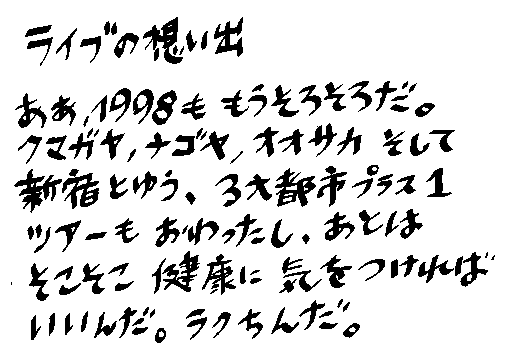 ライブの想い出
ああ,1998も もうそろそろだ。
クマガヤ,ナゴヤ,オオサカ そして
新宿とゆう、3大都市プラス1
ツアーも おわったし、あとは
そこそこ 健康に 気をつければ
いいんだ。ラクちんだ。